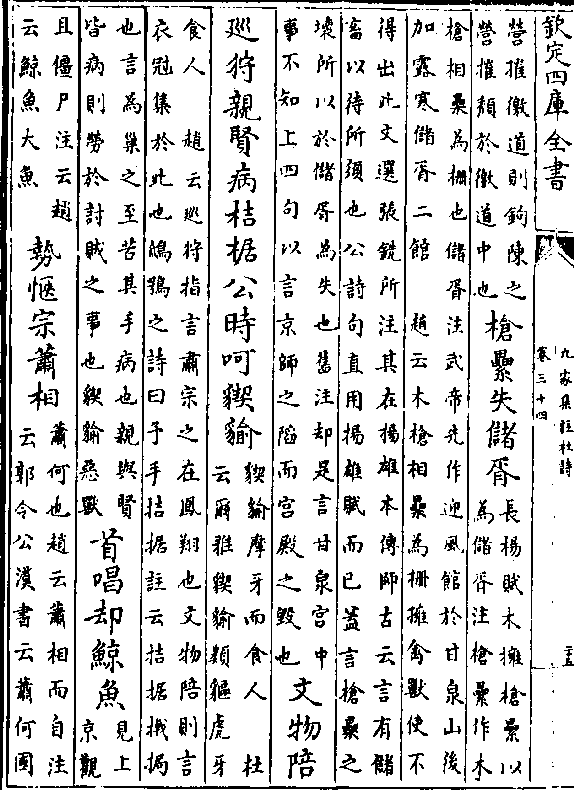 欽定四庫全書
九家集註杜詩
卷三十四
二十五
營推徼道則鉤陳之
營摧頽於徼道中也
槍纍失儲胥
長楊賦木擁槍纍以
為儲胥注槍纍作木
槍相纍為柵也儲胥注武帝先作迎風館於甘泉山後
加露寒儲胥二館　趙云木槍相纍為柵擁禽獸使不
得出此文選張銑所注其在揚雄本傳師古云言有儲
畜以待所須也公詩句直用揚雄賦而已蓋言槍纍之
壞所以於儲胥為失也舊注却是言甘泉宫中
事不知上四句以言京師之陷而宫殿之毀也
文物陪
巡狩親賢病拮据公時呵猰㺄
猰㺄摩牙而食人　杜
云爾雅猰㺄類貙虎牙
食人　趙云巡狩指言肅宗之在鳳翔也文物陪則言
衣冠集於此也鴟鴞之詩曰予手拮据註云拮据撠挶
也言為巢之至苦其手病也親與賢
皆病則勞於討賊之事也猰㺄惡獸
首唱却鯨魚
見上
京觀
且僵尸注云趙
云鯨魚大魚
勢愜宗蕭相
蕭何也趙云蕭相而自注
云郭令公漢書云蕭何國